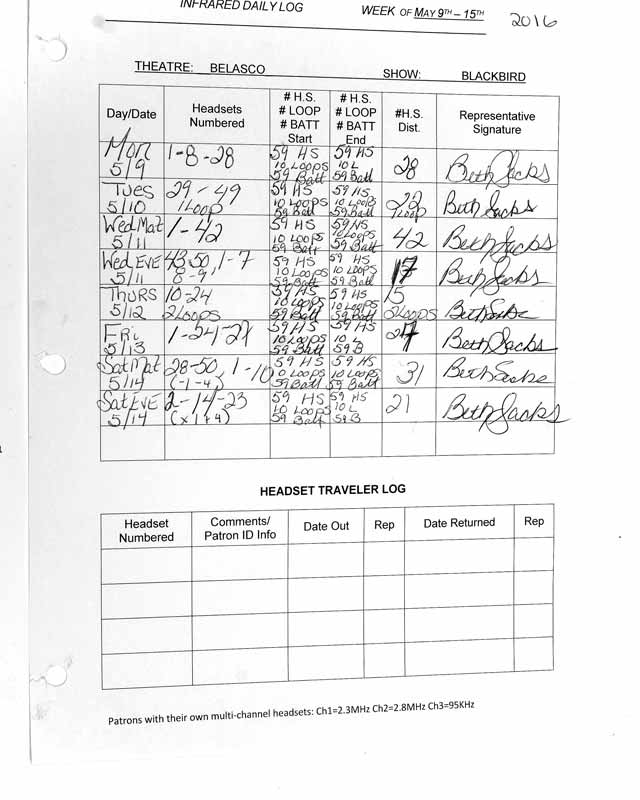 INFRARED DAILY LOG WEEK OF MAY 9TH – 15TH 2016
THEATRE: BELASCO SHOW: BLACKBIRD
Day/Date Headsets Numbered # H.S. # LOOP # BATT Start # H.S. # LOOP # BATT End #H.S. Dist. Representative Signature
Mon 5/9 1-8-28 59 HS 10 LOOPS 59 Batt 59 HS 10 L 59 Batt 28 Beth Sacks
Tues 5/10 29-49 1 Loop 59 HS 10 LOOPS 59 Batt 59 HS 10 Loops 59 Batt 22 1Loop Beth Sacks
Wed Mat 5/11 1-42 59 HS 10 LOOPS 59 Batt 59 HS 10 Loops 59 Batt 42 Beth Sacks
Wed EVE 5/11 43-50, 1-7 8-9 59 HS 10 LOOPS 59 Batt 59 HS 10 LOOPS 59 Batt 17 Beth Sacks
THURS 5/12 10-24 2 LOOPS 59 HS 10 LOOPS 59 Batt 59 HS 10 Loops 59 Batt 15 2 LOOPS Beth Sacks
FRi 5/13 1-24-27 59 HS 10 LOOPS 59 Batt 59 HS 10 L 59 B 27 Beth Sacks
Sat Mat 5/14 28-50, 1-10 (-1-4) 59 HS 10 LOOPS 59 Batt 59 HS 10 LOOPS 59 Batt 31 Beth Sacks
Sat EVE 5/14 2-14-23 (x1+4) 59 HS 10 LOOPS 59 Batt 59 HS 10 L 59 B 21 Beth Sacks
HEADSET TRAVELER LOG
Headset Numbered Comments/ Patron ID Info Date Out Rep Date Returned Rep
Patrons with their own multi-channel headsets: Ch1=2.3MHz Ch2=2.8MHz Ch3=95KHz